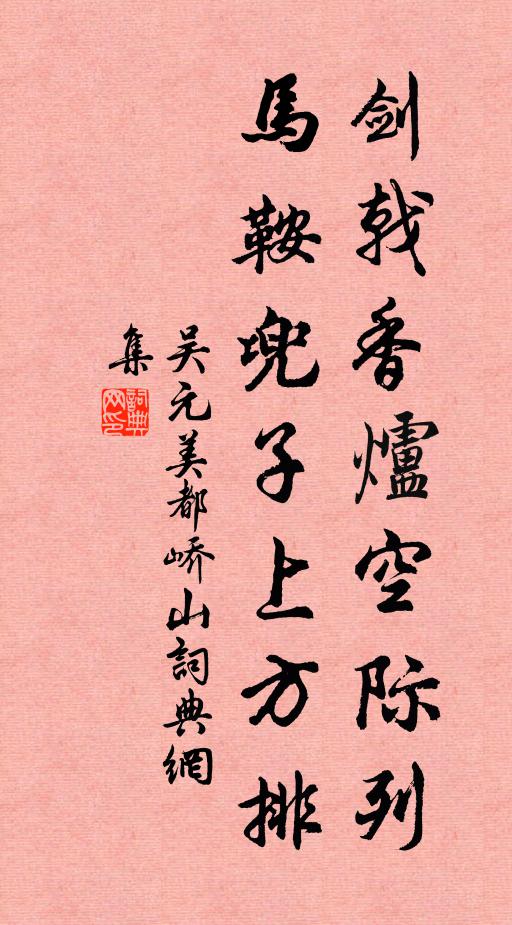 剑戟香爐空际列
馬鞍兜子上方排
吴元美都峤山詞典網
集
詞典
网印